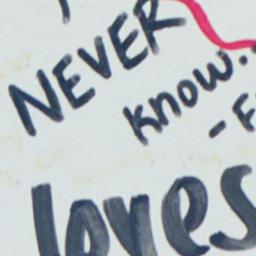 NEVER
KNOW.
- E
loves